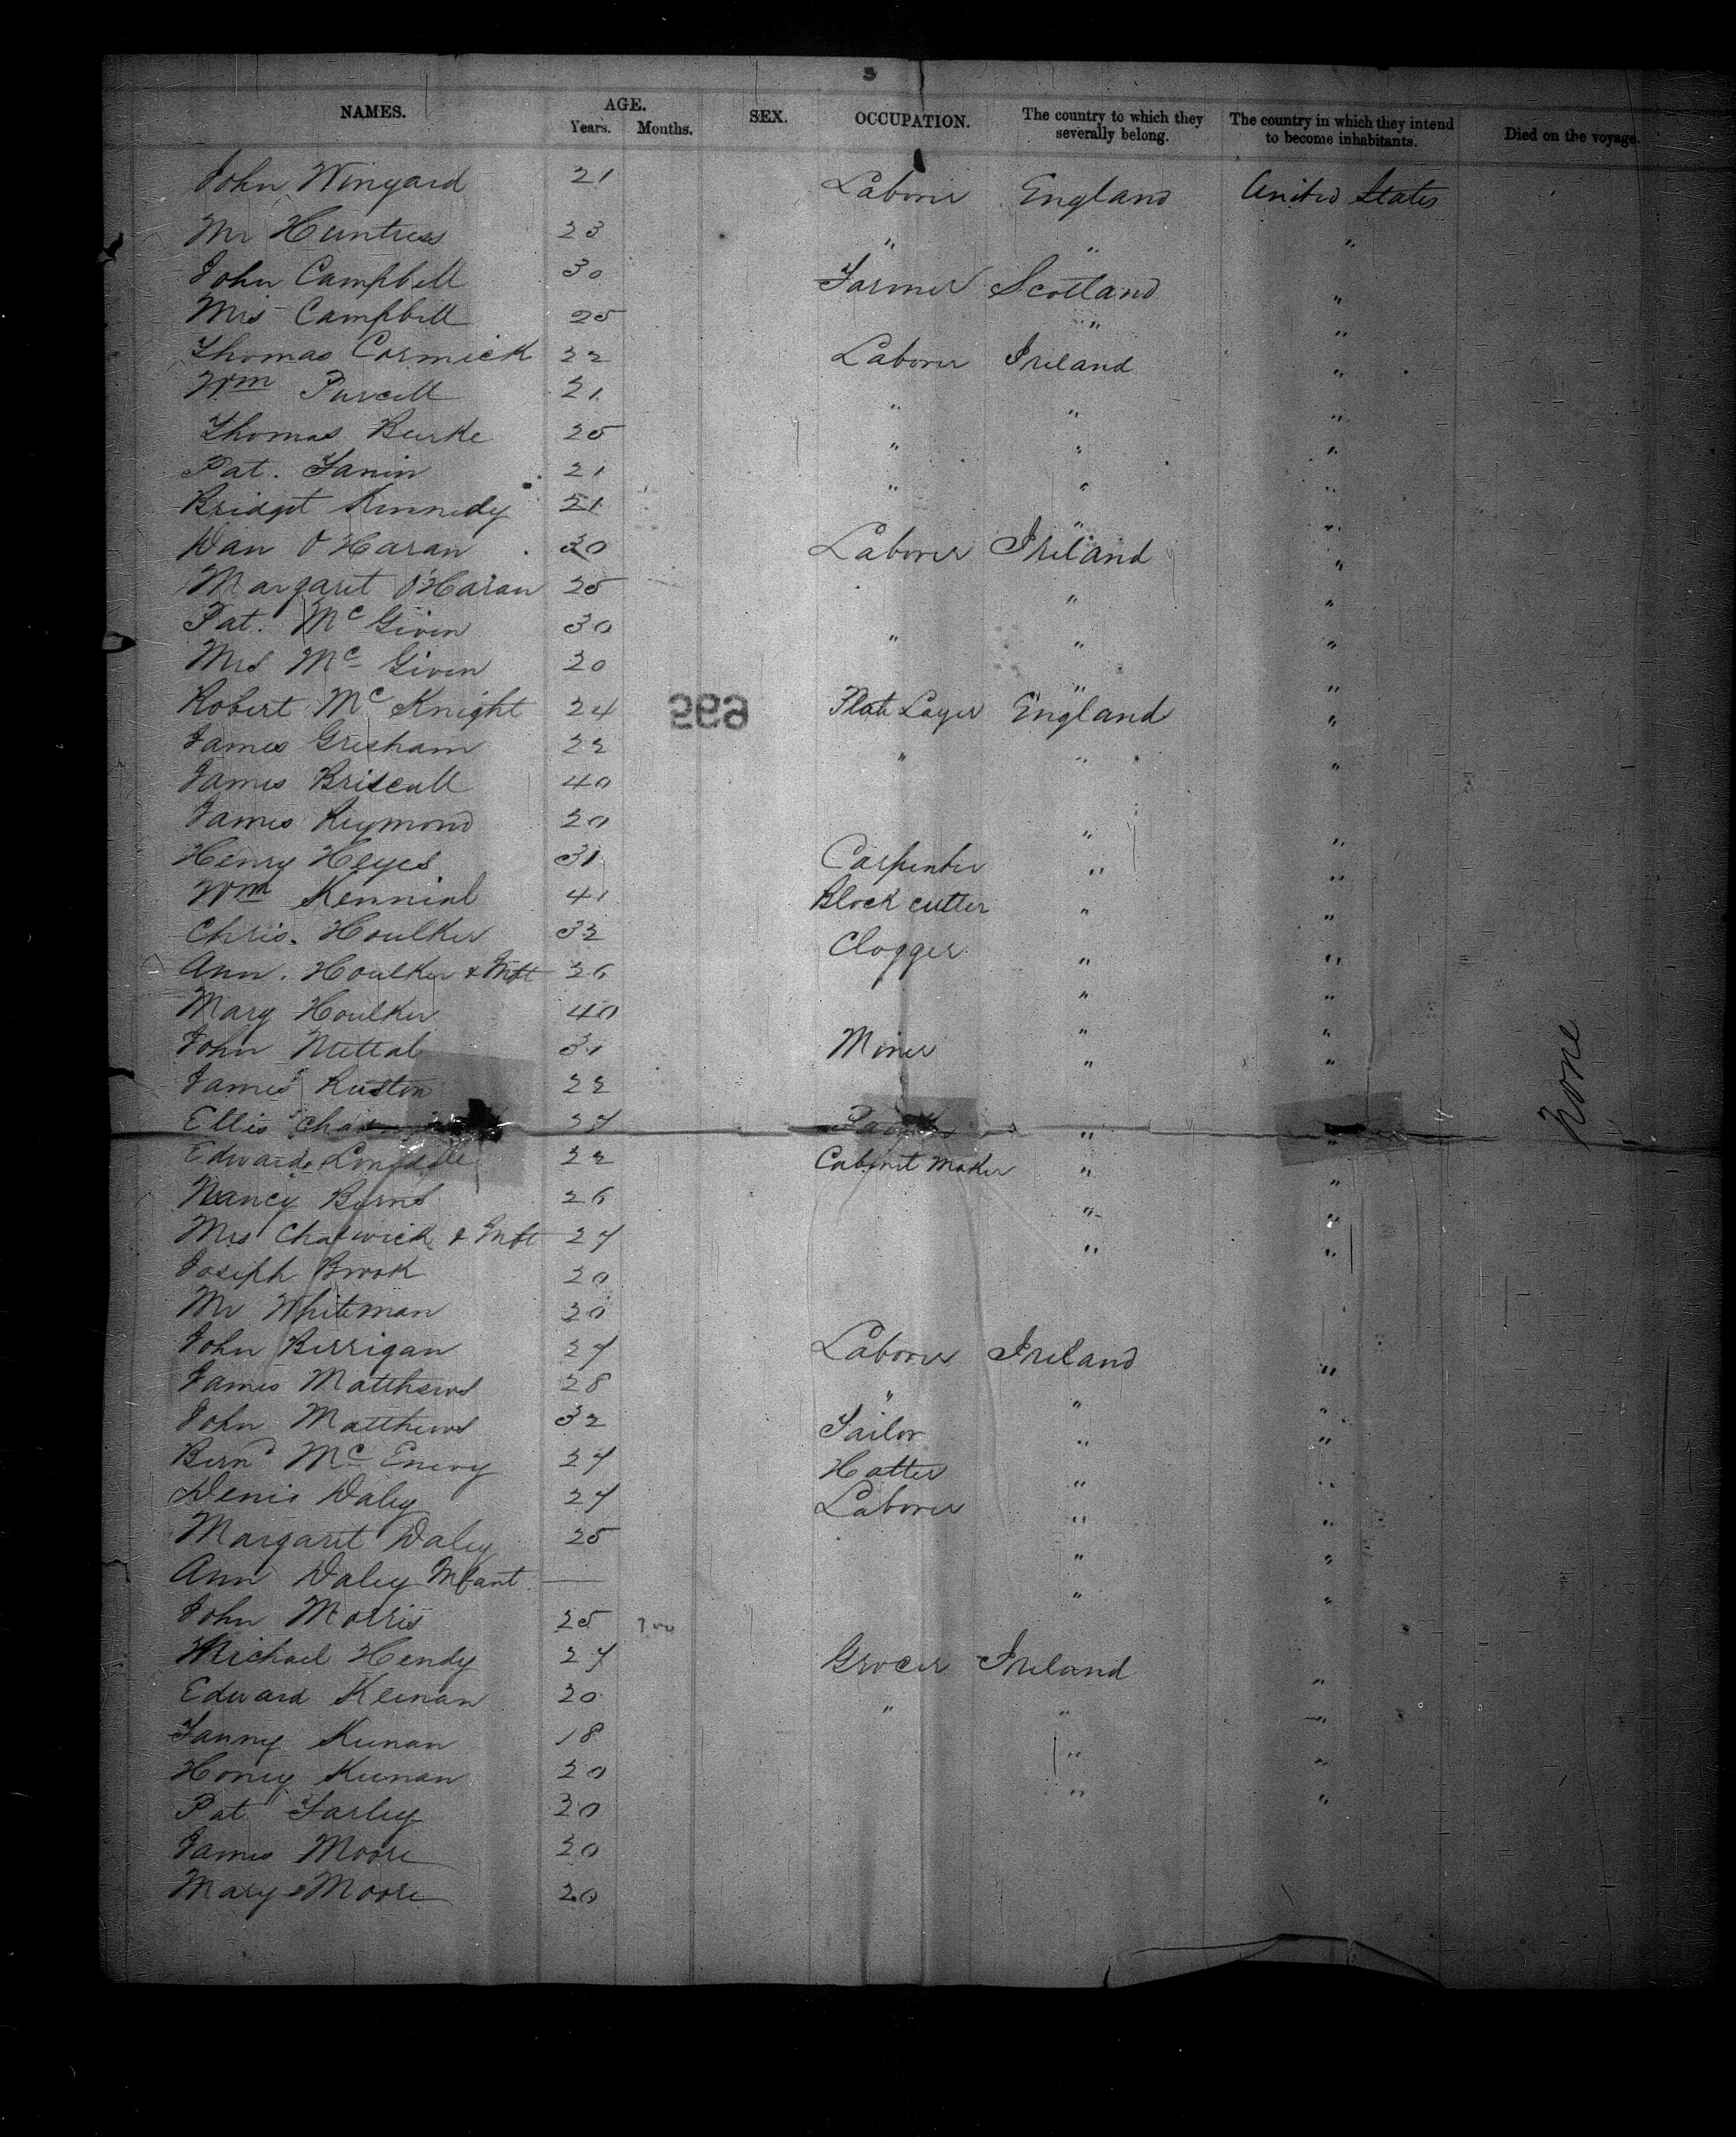 NAMES. AGE. Years. Months. SEX. OCCUPATION. The country to which they severally belong. The country in which they intend to become inhabitants. Died on the voyage.
John Winyard 21 Laborer England United States
Mr Huntress 23 " " "
John Campbell 30 Farmer Scotland "
Mrs Campbell 25 " "
Thomas Cormick 22 Laborer Ireland "
Wm Purcell 21 " " "
Thomas Burke 25 " " "
Pat. Fanin 21 " " "
Bridget Kennedy 21 " "
Dan O'Haran 30 Laborer Ireland "
Margaret O'Haran 25 " "
Pat. McGiven 30 " " "
Mrs McGiven 20 " "
Robert McKnight 24 Plate Layer England "
James Gresham 22 " " "
James Briscall 40
James Reymond 20 " "
Henry Heyes 31 Carpenter " "
Wm 41 Block cutter " "
Chris. Houlker 32 Clogger " "
Ann. Houlker & Inft 26 " "
Mary Houlker 40 " "
John Nuttal 31 Miner " "
James Ruston 22
Ellis 27 " "
Edward Lonsdale 22 Cabinet Maker " "
Nancy Burns 26 " "
Mrs Chadwick & Inft 27 " "
Joseph Brook 20
Mr Whiteman 20
John Berrigan 27 Laborer Ireland "
James Matthews 28 " " "
John Matthews 32 Tailor " "
Bernd McEnevy 27 Hatter " "
Denis Daley 27 Laborer " "
Margaret Daley 25 " "
Ann Daley Infant — " "
John Morris 25
Michael Hendy 27 Grocer Ireland "
Edward Keenan 20 " " "
Fanny Keenan 18 " "
Honey Keenan 20 " "
Pat Farley 20
James Moore 20
Mary Moore 20
None